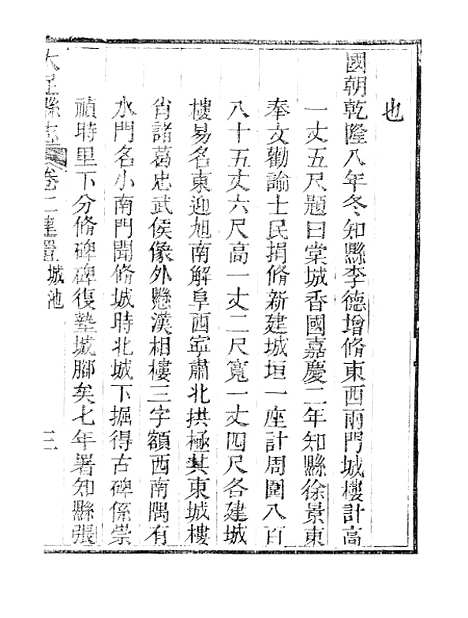 也
國朝乾隆八年冬知縣李德增脩東西兩門城樓計高
一丈五尺題曰棠城香國嘉慶二年知縣徐景東
奉文勸諭士民捐脩新建城垣一座計周圍八百
八十五丈六尺高一丈二尺寬一丈四尺各建城
樓易名東迎旭南解阜西寧肅北拱極其東城樓
肖諸葛忠武侯像外懸漢相樓三字額西南隅有
水門名小南門聞脩城時北城下掘得古碑係崇
禎時里下分脩碑碑復墊城腳矣七年署知縣張
大足縣志 卷二建置 城池 三